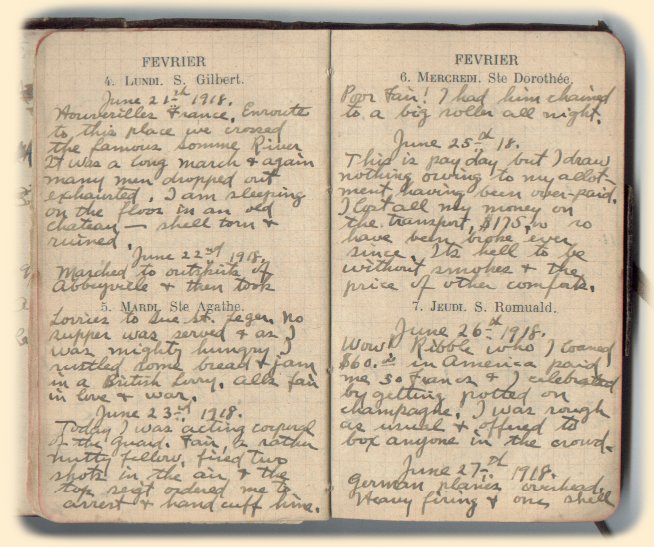 FEVRIER
4. LUNDI. S. Gilbert.
June 21st 1918.
France. Enroute
to this place we crossed
the famous Somme River
It was a long march & again
many men dropped out
exhausted. I am sleeping
on the floor in an old
chateau — shell torn &
ruined.
June 22nd 1918.
Marched to outskirts of
Abbeyville & then took
5. MARDI. Ste Agathe.
Lorries to Rue St. Leger. No
supper was served & as I
was mighty hungry I
rustled some bread & jam
in a British lorry. All's fair
in love & war.
June 23rd 1918.
Today I was acting corporal
of the guard. Fair, a rather
nutty fellow, fired two
shots in the air & the
top sergt ordered me to
arrest & hand cuff him.
FEVRIER
6. MERCREDI. Ste Dorothée.
Poor Fair! I had him chained
to a big roller all night.
June 25th 18.
This is pay day but I draw
nothing owing to my allot-
ment having been over-paid.
I lost all my money on
the transport, $175,
have been broke ever
since. Its hell to be
without smokes & the
price of other comforts.
7. JEUDI. S. Romuald.
June 26th 1918.
Wow! Ribble who I loaned
$60.00 in America paid
me 30 Francs & I celebrated
by getting potted on
champagne. I was rough
as usual & offered to
box anyone in the crowd.
June 27th 1918.
German planes overhead.
Heavy firing & one shell